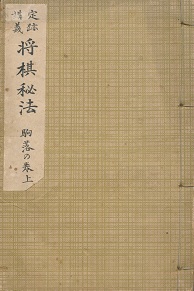 定跡
講義
将棋秘法
駒落の巻上